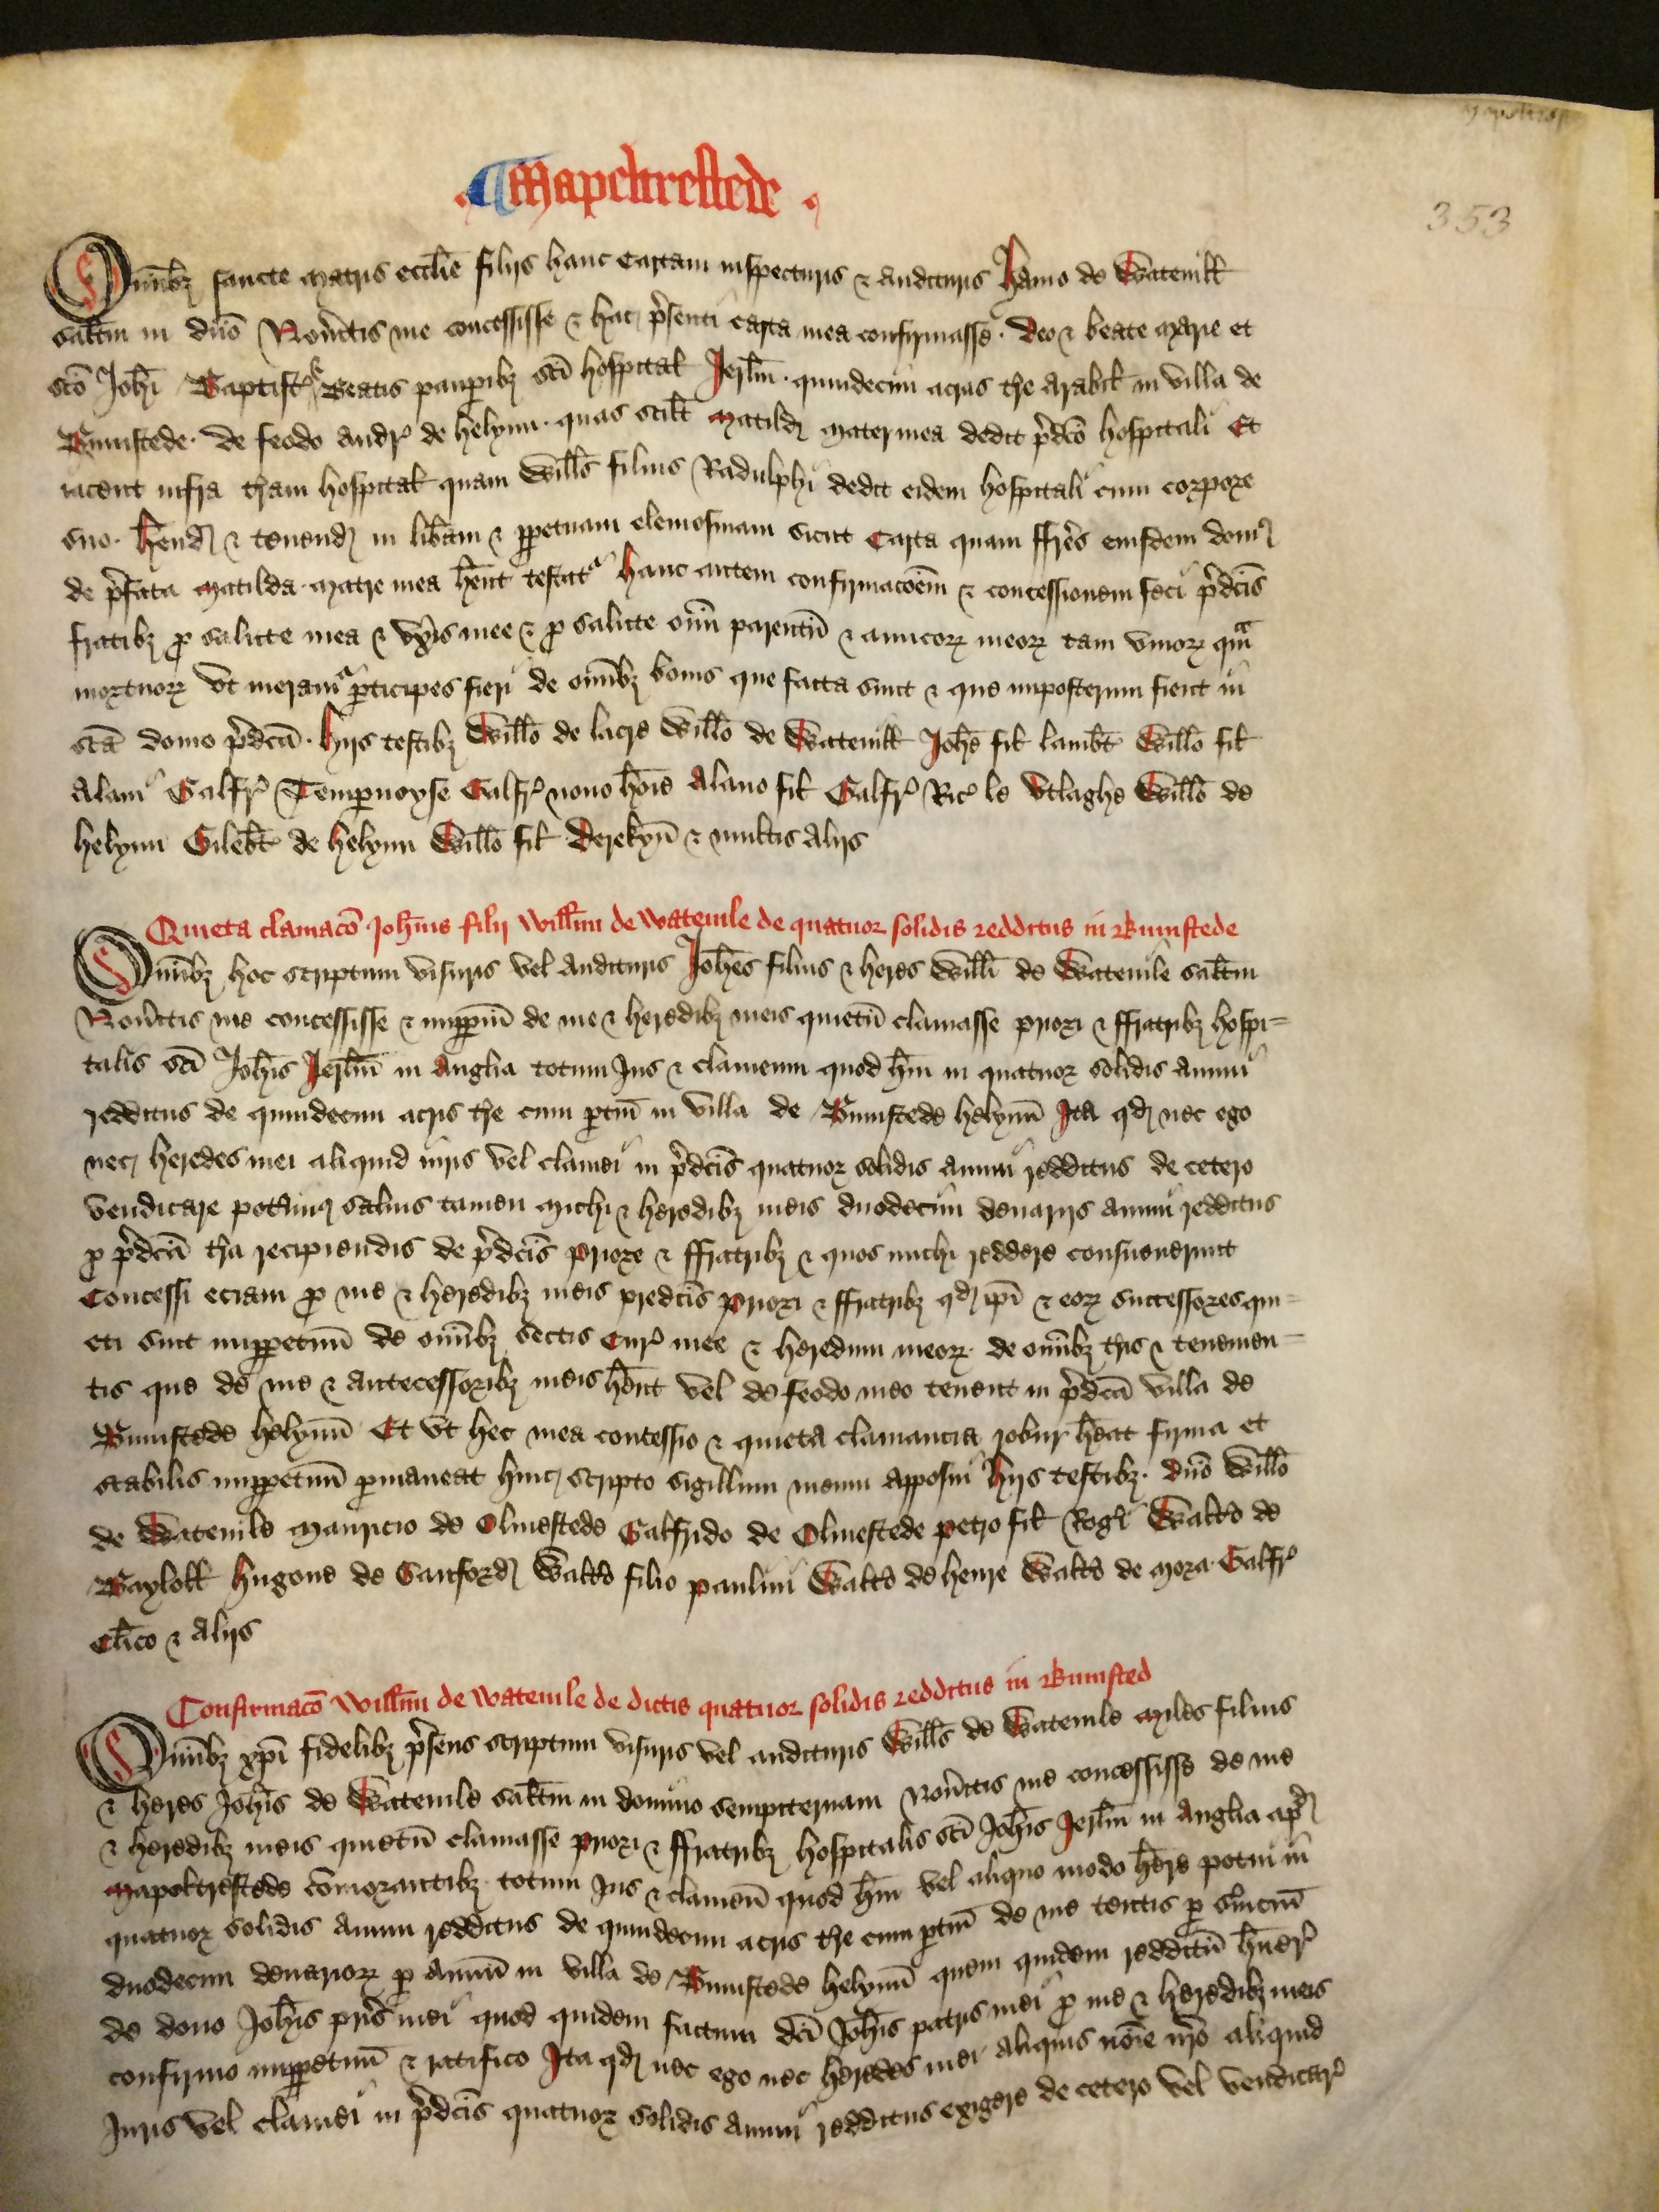 Mapeltrestede
353
Omībȝ sancte Matris eccl̄ie filijs hanc cartam inspecturis ⁊ audituris Hamo de Wateuill̄
salt̄m in dn̄o Nou̓itis me concessisse ⁊ hac p̄senti carta mea confirmasse. Deo ⁊ beate Marie et
sc̄o Joh̄i Baptist̓ ⁊ Beatis paupibȝ sc̄i hospital̄ Jerl̄m. quindecim acras t̄re arabil̄ in villa de
Bumstede. de feodo Andr̓ de helyun. quas scil̄t Matild̓ Mater mea dedit p̄dc̄o hospitali Et
iacent infra t̄ram hospital̄ quam Will̄s filius Radulphi dedit eidem hospitali cum corpore
suo. h̄end̓ ⁊ tenend̓ in lib̄am ⁊ ꝑpetuam elemosinam sicut Carta quam ffr̄es eiusdem dom̓
de p̄fata Matilda Matre mea h̄ent testat̓ Hanc autem confirmacōem ⁊ concessionem feci p̄dc̄is
fratribȝ ꝓ salute mea ⁊ vx̄is mee ⁊ ꝓ salute om̄i parentū ⁊ amicoꝝ meoꝝ tam viuoꝝ qᵃm
mortuoꝝ vt meram̓ ꝑticipes fieri de om̄ibȝ bonis que facta sunt ⁊ que imposterum fient in
sc̄a domo p̄dc̄a. Hijs testibȝ Will̄o de lacre Will̄o de Wateuill̄ Joh̄e fil̄ lamb̄t Will̄o fil̄
Alani Galfr̓ Tempernoyse Galfr̓ nouo hōie Alano fil̄ Galfr̓ Ric̓ le vtlaghe Will̄o de
helyun Gileb̄t de helyun Will̄o fil̄ Derekyn̄ ⁊ multis alijs
Quieta clamacō Joh̄nis filij Will̄mi de wateuile de quatuor solidis redditus in Bumstede
Omībȝ hoc scriptum visuris vel audituris Joh̄es filius ⁊ heres Will̄i de Wateuile salt̄m
Nou̓itis me concessisse ⁊ imꝑpm̄ de me ⁊ heredibȝ meis quietū clamasse priori ⁊ ffratribȝ hospi=
talis sc̄i Joh̄is Jerl̄m in Anglia totum Jus ⁊ clameum quod h̄ui in quatuor solidis annui
redditus de quindecim acris t̄re cum ꝑtin̄ in villa de Bumstede helyun̄ Ita qd̓ nec ego
nec heredes mei aliquid iuris vel clamei in p̄dc̄is quatuor solidis annui redditus de cetero
vendicare pot̓imꝰ saluis tamen michi ⁊ heredibȝ meis duodecim denarijs annui redditus
ꝓ p̄dc̄a t̄ra recipiendis de p̄dc̄is priore ⁊ ffratribȝ ⁊ quos michi reddere consueuerunt
Concessi eciam ꝓ me ⁊ heredibȝ meis predc̄is priori ⁊ ffratribȝ qd̓ ip̄i ⁊ eoꝝ successores qui=
eti sint imꝑpetuū de om̄ibȝ sectis Cur̓ mee ⁊ heredum meoꝝ. de om̄ibȝ t̄ris ⁊ tenemen=
tis que de me ⁊ antecessoribȝ meis h̄ent vel de feodo meo tenent in p̄dc̄a villa de
Bumstede helyun̄ Et vt hec mea concessio ⁊ quieta clamancia robur h̄eat firma et
stabilis imꝑpetuū ꝑmaneat huic scripto sigillum meum apposui Hijs testibȝ. dn̄o Will̄o
de Wateuile Mauricio de Olmestede Galfrido de Olmestede petro fil̄ Rog̓i Walt̓o de
Bayloll̄ Hugone de Sanford̓ Walt̓o filio paulini Walt̓o de henre Walt̓o de Mora Galfr̓
Cl̄ico ⁊ alijs
Confirmacō Will̄mi de wateuile de dictis quatuor solidis redditus in Bumsted
Omībȝ xp̄i fidelibȝ p̄sens scriptum visuris vel audituris Will̄s de Wateuile Miles filius
⁊ heres Joh̄is de Wateuile salt̄m in domino sempiternam Nou̓itis me concessisse de me
⁊ heredibȝ meis quietū clamasse priori ⁊ ffratribȝ hospitalis sc̄i Joh̄is Jerl̄m in Anglia apd̓
Mapeltrestede cōmorantibȝ totum Jus ⁊ clameū quod h̄ui vel aliquo modo h̄ere potui in
quatuor solidis annui redditus de quindecim acris t̄re cum ꝑtin̄ de me tentis ꝑ s̓uiciū
duodecim denarioꝝ ꝑ Annū in villa de Bumstede helyun̄ quem quidem redditū h̄uer̓
de dono Joh̄is pr̄is mei quod quidem factum dc̄i Joh̄is patris mei ꝓ me ⁊ heredibȝ meis
confirmo imꝑpetuū ⁊ ratifico Ita qd̓ nec ego nec heredes mei aliquis noīe nr̄o aliquid
Juris vel clamei in p̄dc̄is quatuor solidis annui redditus exigere de cetero vel vendicar̓